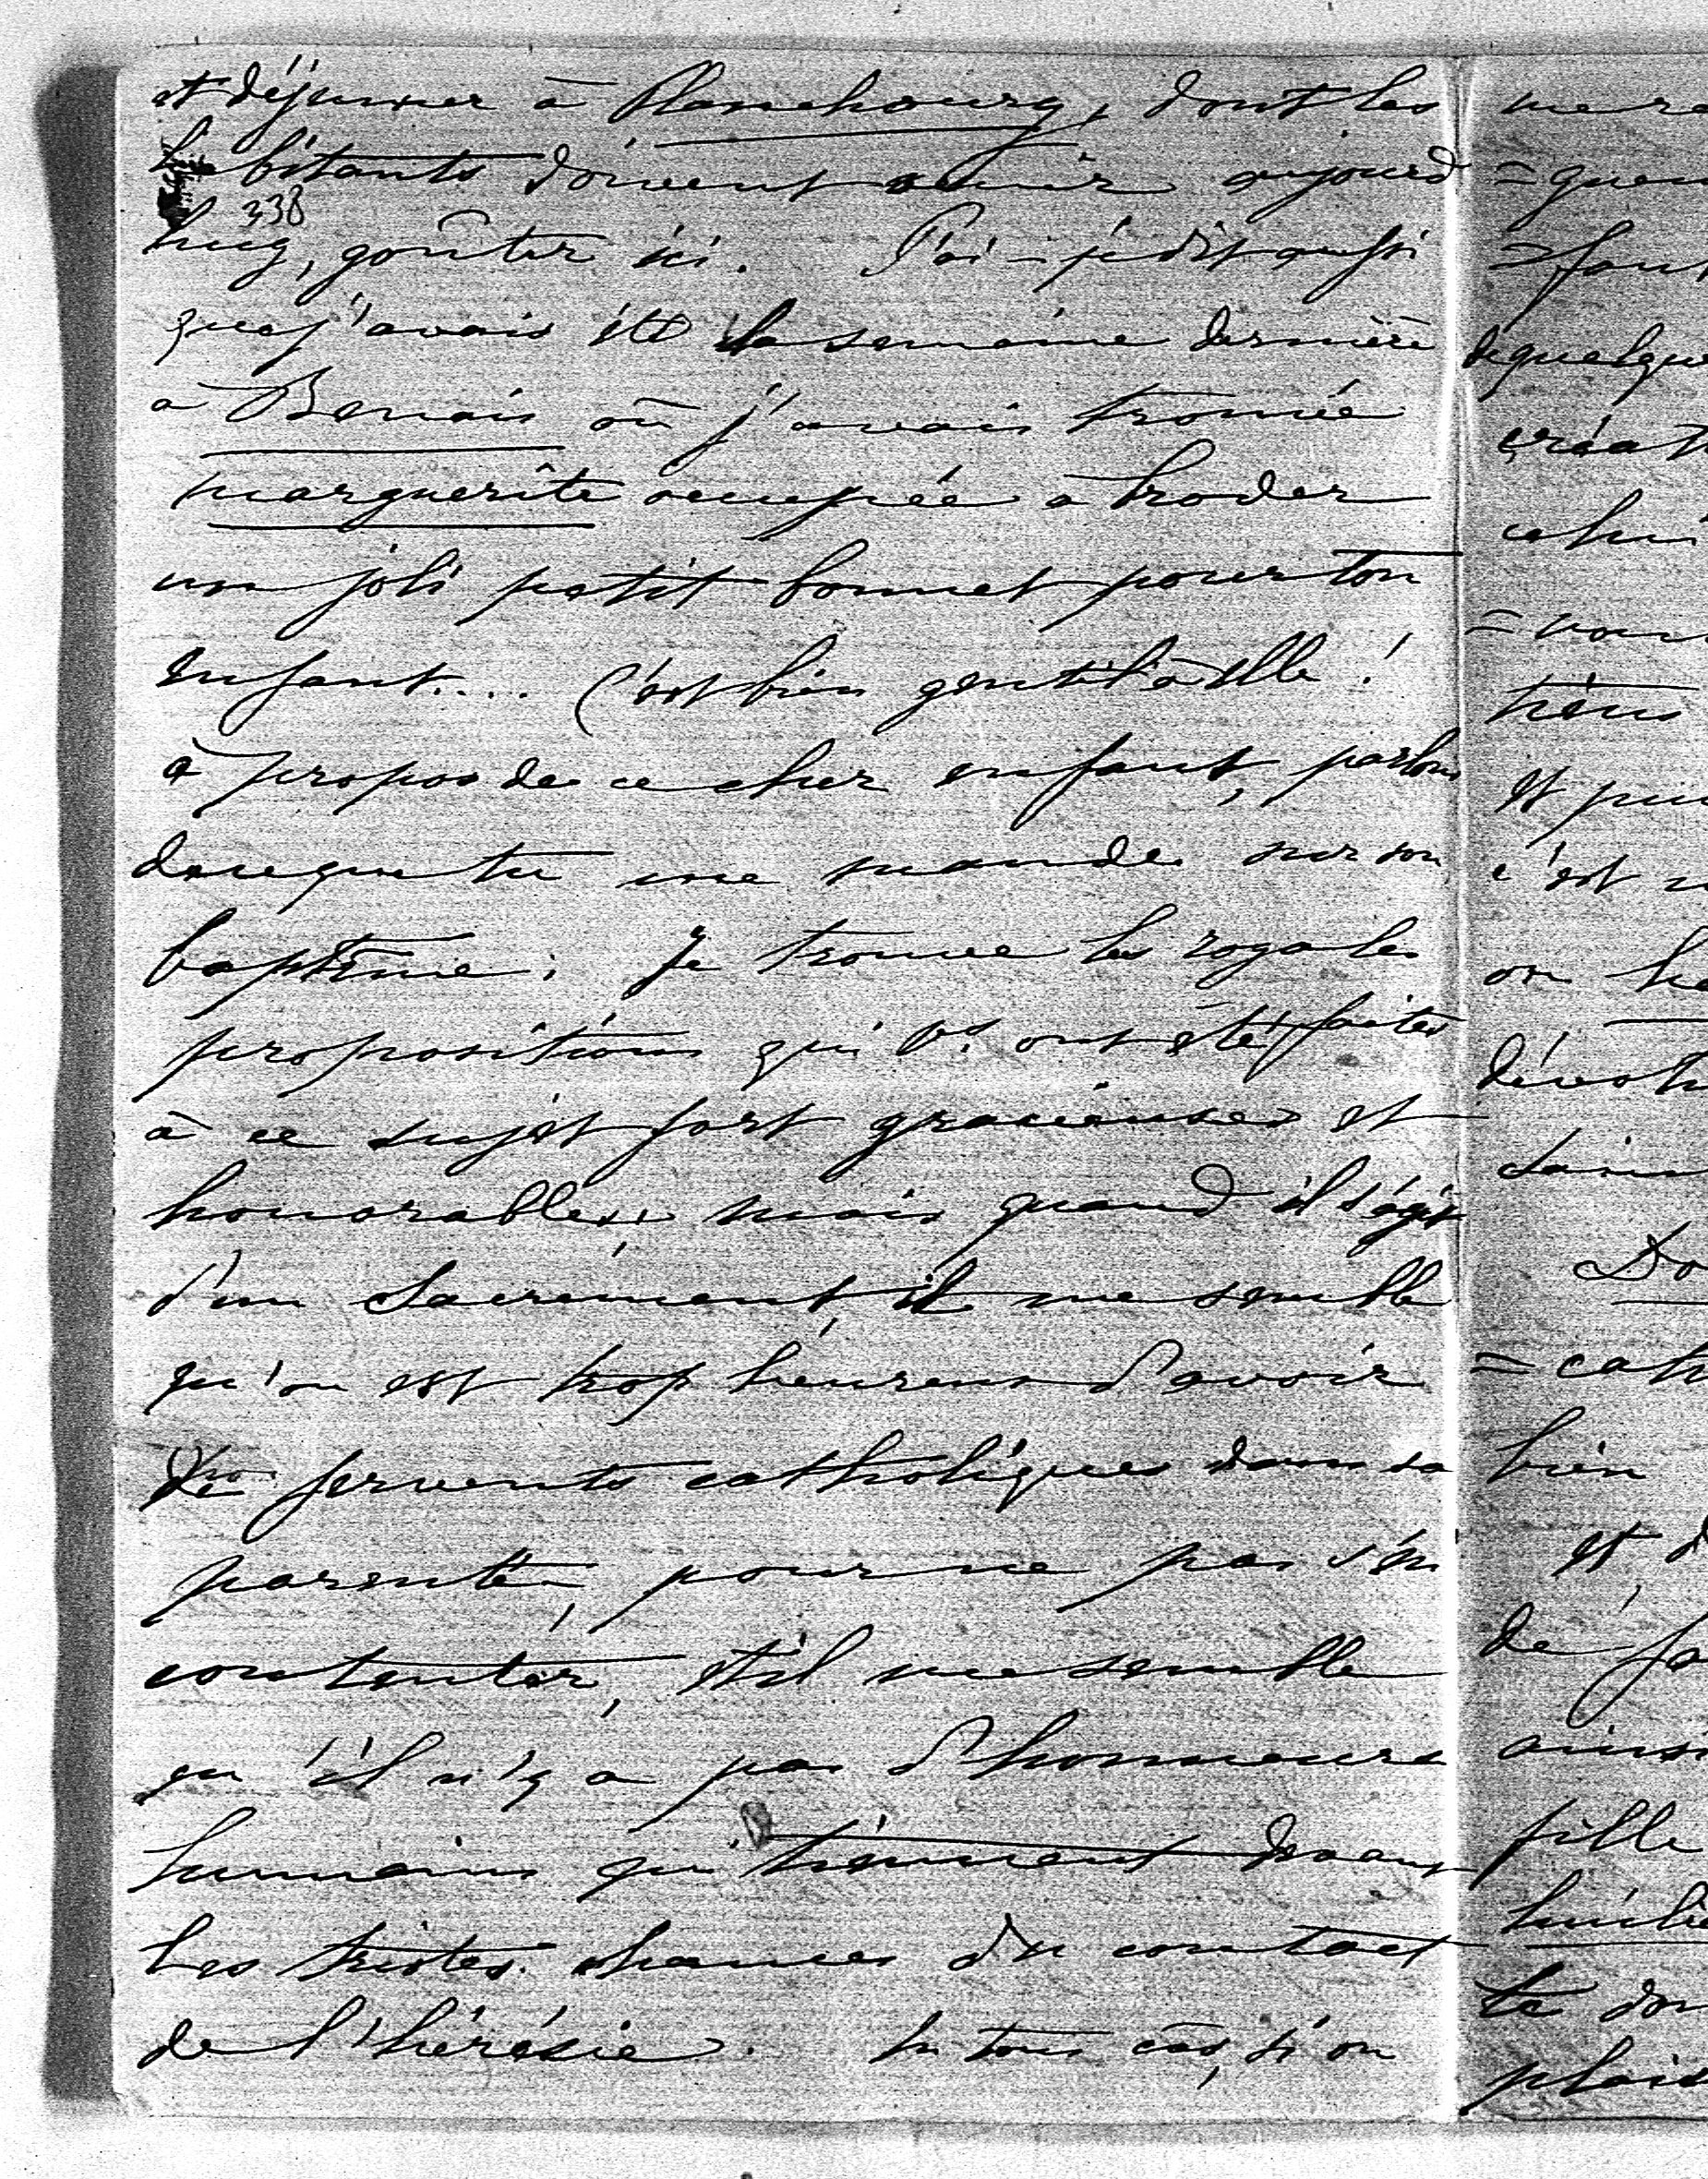 et déjeuner à Planchoury, dont les
habitants doivent venir aujourd
338
huy, goûter ici. T'ai-je dit aussi
que j'avais été la semaine dernière
a Benais où j'avais trouvée
marguerite occupée à broder
un joli petit bonnet pour ton
enfant.... C'est bien gentil à elle!
à propos de ce cher enfant, parlons
de ce que tu me mandes sur son
baptême: Je trouve les royales
propositions qui vs. ont été faites
à ce sujet fort gracieuses et
honorables; mais quand il s'agit
d'un Sacrement, il me semble
qu'on est trop heureux d'avoir
de fervents catholiques dans sa
parenté, pour ne pas s'en
contenter, et il me semble
qu'il n'y a pas d'honneurs
humains qui tiennent devant
les tristes chances du contact
de l'hérésie. En tous cas, si on
= quem
dequelque
créat
= vou
et pui
c'est
on
Do
= cath
bien
et
de fa
ainsi
fille
te don
plais